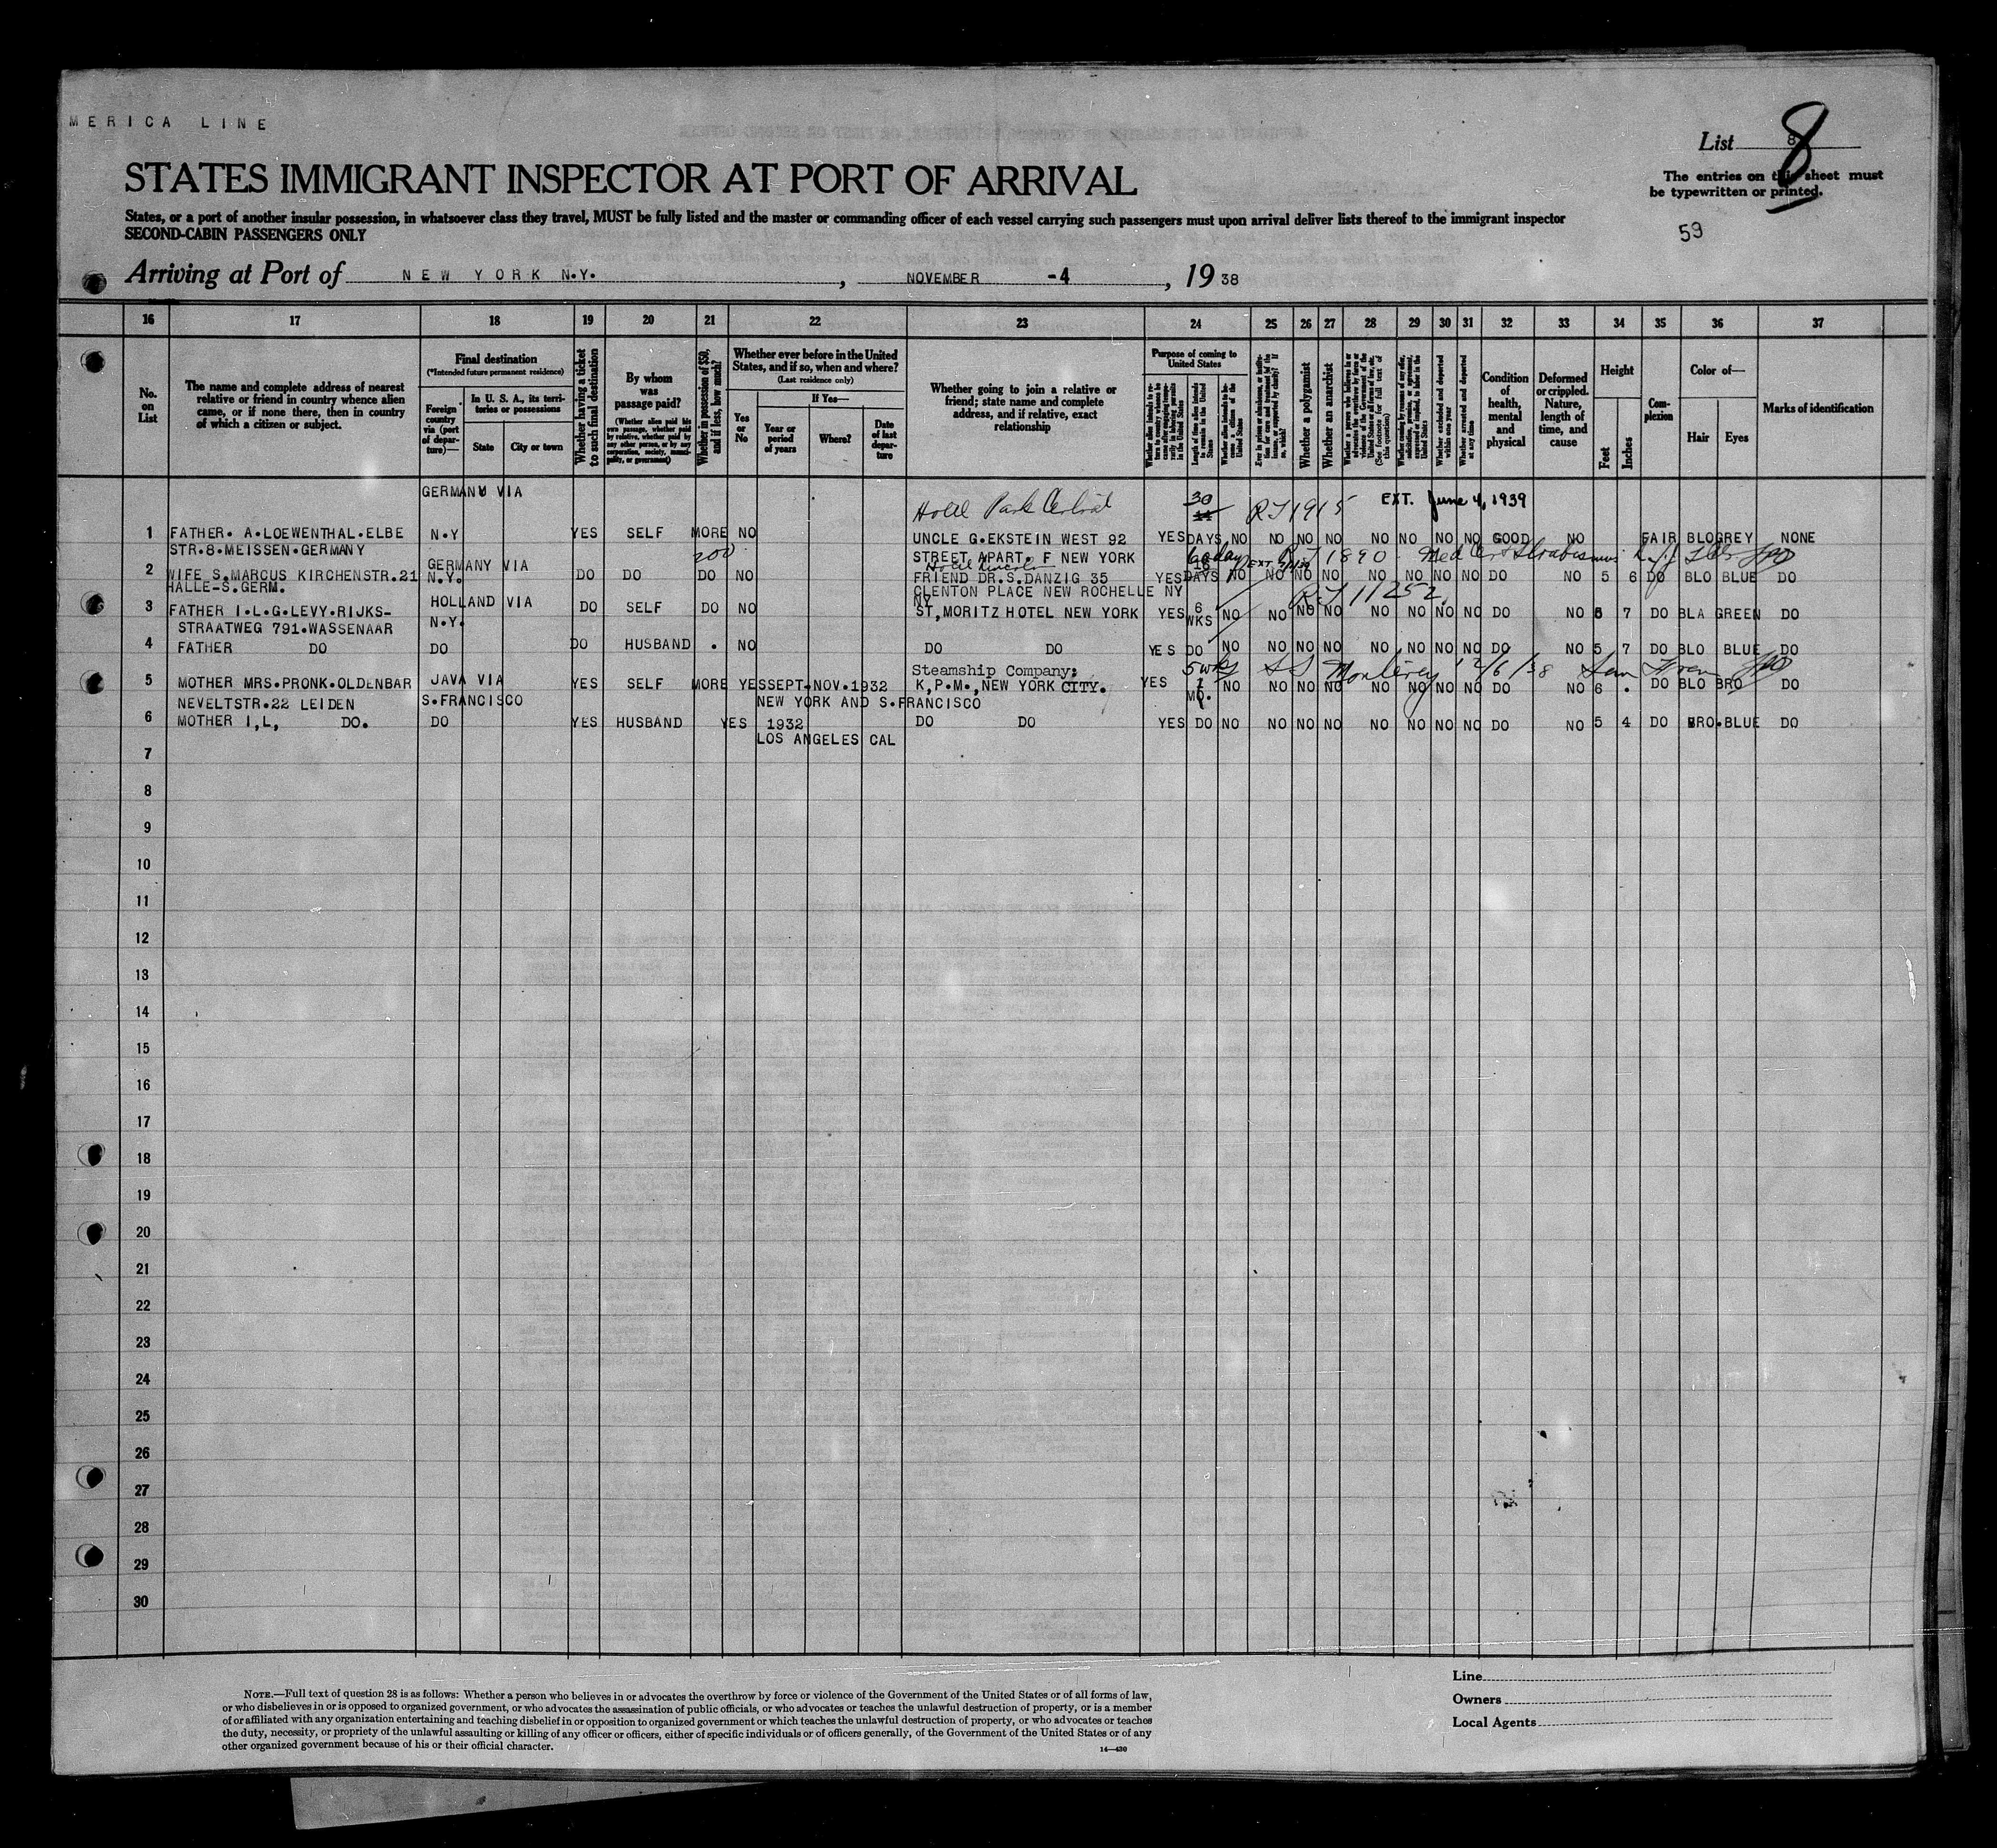 MERICA LINE
List 8
8
STATES IMMIGRANT INSPECTOR AT PORT OF ARRIVAL
The entries on this sheet must
be typewritten or printed.
States, or a port of another insular possession, in whatsoever class they travel, MUST be fully listed and the master or commanding officer of each vessel carrying such passengers must upon arrival deliver lists thereof to the immigrant inspector
SECOND-CABIN PASSENGERS ONLY
59
Arriving at Port of NEW YORK N.Y., NOVEMBER -4, 1938
16 17 18 19 20 21 22 23 24 25 26 27 28 29 30 31 32 33 34 35 36 37
No. on List
The name and complete address of nearest relative or friend in country whence alien came, or if none there, then in country of which a citizen or subject.
Final destination
(*Intended future permanent residence)
Foreign country via (port of departure)—
In U. S. A., its territories or possessions
State
City or town
Whether having a ticket to such final destination
By whom was passage paid?
(Whether alien paid his own passage, whether paid by relative, whether paid by any other person, or by any corporation, society, municipality, or government)
Whether in possession of $50, and if less, how much?
Whether ever before in the United States, and if so, when and where?
(Last residence only)
Yes or No
If Yes—
Year or period of years
Where?
Date of last departure
Whether going to join a relative or friend; state name and complete address, and if relative, exact relationship
Purpose of coming to United States
Length of time alien intends to remain in the United States
Whether a polygamist
Whether an anarchist
Whether excluded and deported within one year
Whether arrested and deported at any time
Condition of health, mental and physical
Deformed or crippled. Nature, length of time, and cause
Height
Feet
Inches
Complexion
Color of—
Hair
Eyes
Marks of identification
GERMANY VIA
Hotel Park Central 30 14 RJ1915 EXT. June 4, 1939
1 FATHER. A.LOEWENTHAL.ELBE N.Y YES SELF MORE NO UNCLE G.EKSTEIN WEST 92 YES DAYS NO NO NO NO NO NO NO NO GOOD NO FAIR BLO GREY NONE
STR.8.MEISSEN.GERMANY 200 STREET APART. F NEW YORK 60 days RJ1890
GERMANY VIA Hotel Lincoln
2 WIFE S.MARCUS KIRCHENSTR.21 N.Y. DO DO DO NO FRIEND DR.S.DANZIG 35 YES DAYS NO NO NO NO NO NO NO NO DO NO 5 6 DO BLO BLUE DO
HALLE-S.GERM. CLENTON PLACE NEW ROCHELLE NY
HOLLAND VIA NY. RJ 11252
3 FATHER I.L.G.LEVY.RIJKS- DO SELF DO NO ST,MORITZ HOTEL NEW YORK YES 6 WKS NO NO NO NO NO NO NO NO DO NO 5 7 DO BLA GREEN DO
STRAATWEG 791.WASSENAAR N.Y.
4 FATHER DO DO DO HUSBAND . NO DO DO YES DO NO NO NO NO NO NO NO NO DO NO 5 7 DO BLO BLUE DO
Steamship Company: 5 wks SS Monterey 12/6/38 San Fran
5 MOTHER MRS.PRONK.OLDENBAR JAVA VIA YES SELF MORE YES SEPT-NOV.1932 K,P.M.,NEW YORK CITY. YES 1 MO. NO NO NO NO NO NO NO NO DO NO 6 . DO BLO BRO DO
NEVELTSTR.22 LEIDEN S.FRANCISCO NEW YORK AND S.FRANCISCO
6 MOTHER I,L, DO. DO YES HUSBAND YES 1932 DO DO YES DO NO NO NO NO NO NO NO NO DO NO 5 4 DO BRO.BLUE DO
LOS ANGELES CAL
7
8
9
10
11
12
13
14
15
16
17
18
19
20
21
22
23
24
25
26
27
28
29
30
Line
Owners
Local Agents
NOTE.—Full text of question 28 is as follows: Whether a person who believes in or advocates the overthrow by force or violence of the Government of the United States or of all forms of law,
or who disbelieves in or is opposed to organized government, or who advocates the assassination of public officials, or who advocates or teaches the unlawful destruction of property, or is a member
of or affiliated with any organization entertaining and teaching disbelief in or opposition to organized government or which teaches the unlawful destruction of property, or who advocates or teaches
the duty, necessity, or propriety of the unlawful assaulting or killing of any officer or officers, either of specific individuals or of officers generally, of the Government of the United States or of any
other organized government because of his or their official character.
14—430